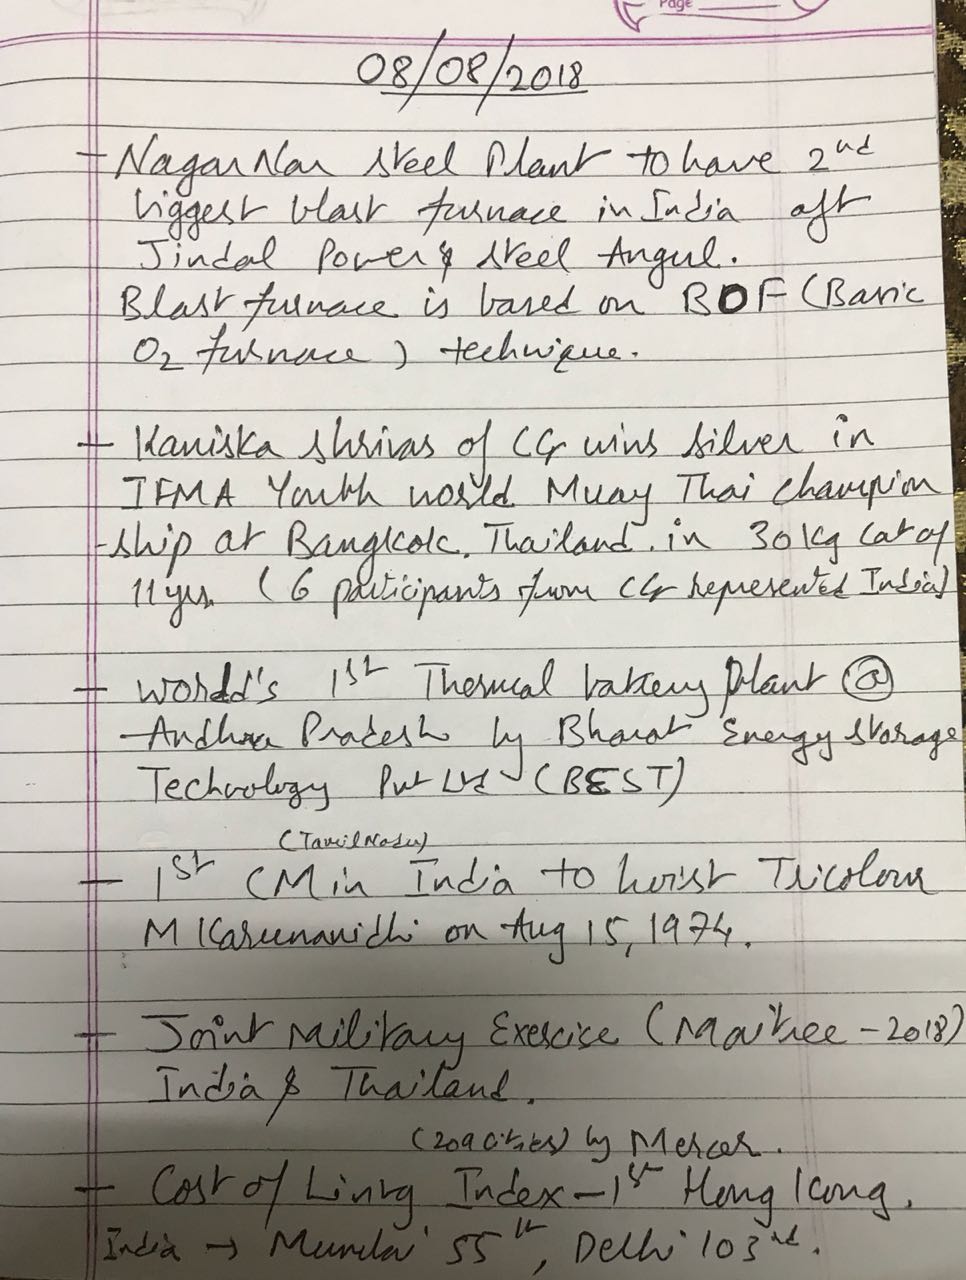 Page
08/08/2018
- Nagar Nar Steel Plant to have 2nd
biggest blast furnace in India aft
Jindal Power & Steel Angul.
Blast furnace is based on BOF (Basic
O2 furnace) technique.
- Kaniska Shrivas of CG wins Silver in
IFMA Youth world Muay Thai champion
-ship at Bangkok, Thailand. in 30 kg cat of
11 yrs. (6 participants from CG represented India)
- World's 1st Thermal battery plant @
Andhra Pradesh by Bharat Energy Storage
Technology Pvt Ltd (BEST)
(Tamil Nadu)
- 1st CM in India to hoist Tricolour
M Karunanidhi on Aug 15, 1974.
- Joint Military Exercise (Maitree - 2018)
India & Thailand.
(209 cities) by Mercer.
- Cost of Living Index - 1st Hong Kong.
India → Mumbai 55th, Delhi 103rd.